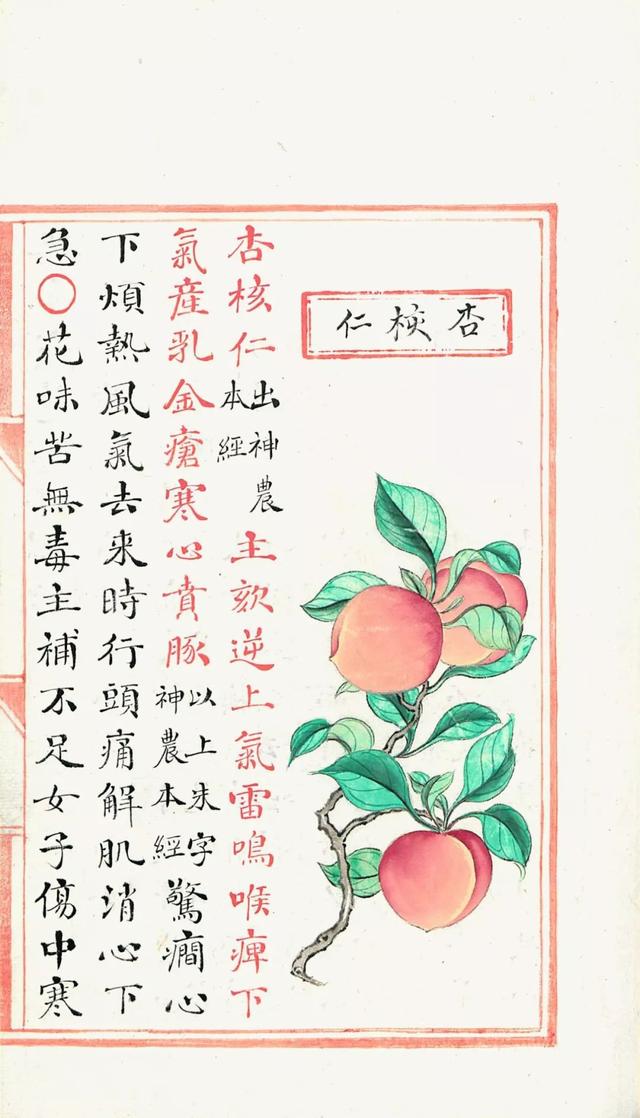 杏核仁
杏核仁出神農本經主欬逆上氣雷鳴喉痺下
氣産乳金瘡寒心賁豚以上朱字神農本經驚癇心
下煩熱風氣去来時行頭痛解肌消心下
急○花味苦無毒主補不足女子傷中寒